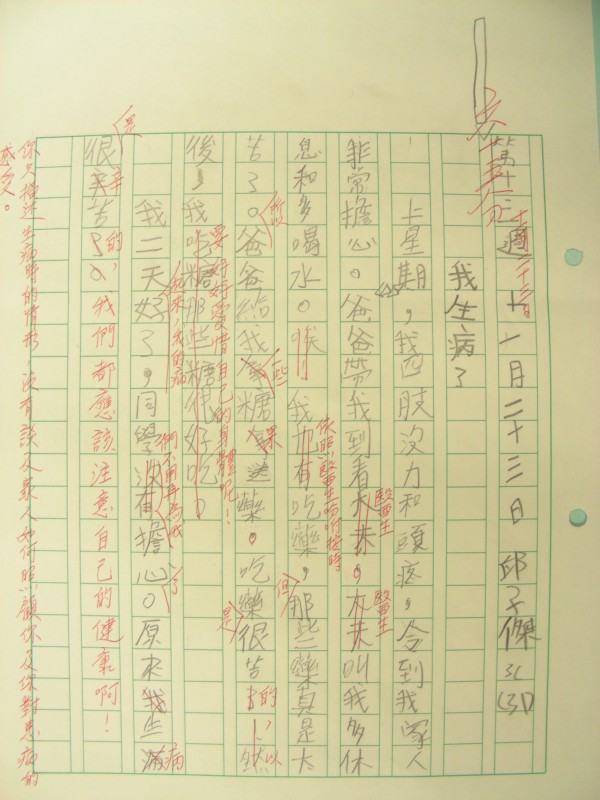 第十三週 十一月二十三日 邱子傑 3C (31)
我生病了
上星期，我四肢沒力和頭疼，令到我家人
非常擔心。爸爸帶我到看大夫。大夫叫我多休
醫生
醫生
息和多喝水。唉！我也有吃藥，那些藥真是太
依照醫生吩咐按時
但
苦了。爸爸給我拿糖送藥。吃藥很苦的，然
所以
一些
果
是
以
後，我吃糖那些糖很好吃。
要好好愛惜自己的身體呢！
起來，我的病
我二天好了，同學沒有擔心。原來我生病
們不用再為我
了
病
很辛苦的，我們都應該注意自己的健康啊！
是
辛
你只描述生病時的情形，沒有談及家人如何照顧你及你對患病的
感受。